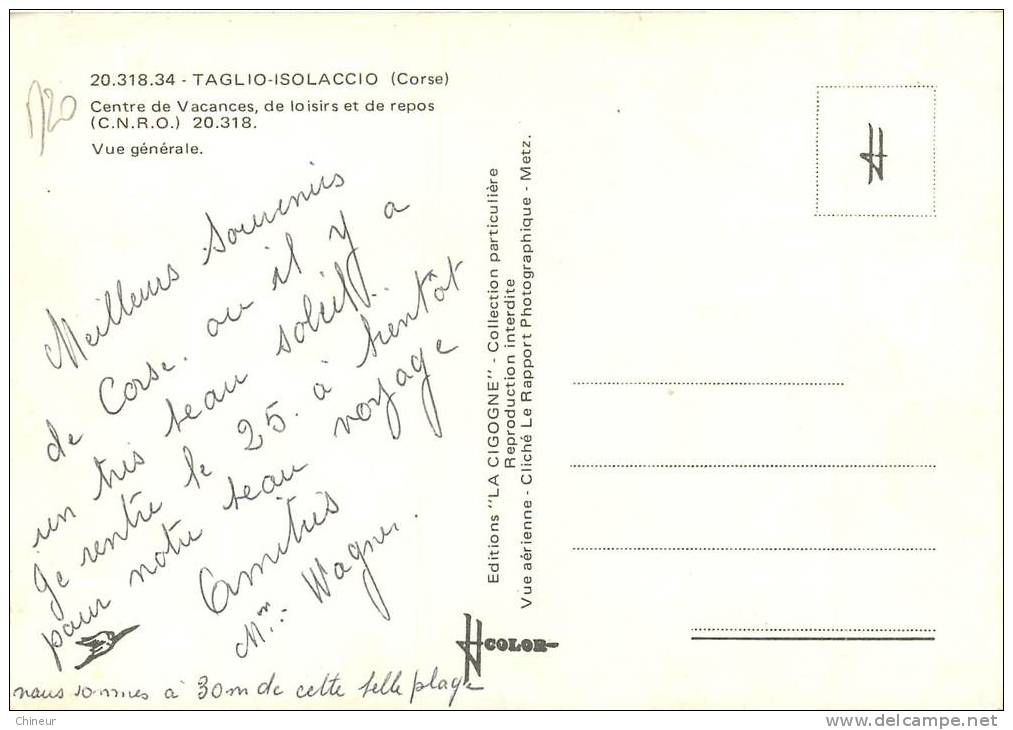 20.318.34 - TAGLIO-ISOLACCIO (Corse)
Centre de Vacances, de loisirs et de repos
(C.N.R.O.) 20.318.
Vue générale.
Meilleurs Souvenirs
de Corse. ou il y a
un très beau soleil..
Je rentre le 25. à bientôt
pour notre beau voyage
Amitiés
Mm.. Wagner.
nous sommes à 30m de cette belle plage
Editions "LA CIGOGNE" - Collection particulière
Reproduction interdite
Vue aérienne - Cliché Le Rapport Photographique - Metz.
COLOR
Chineur
www.delcampe.net